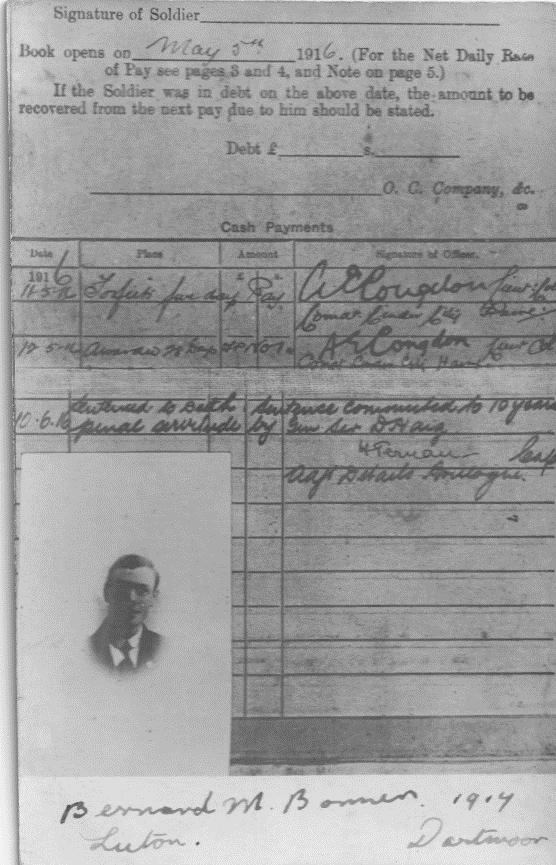 Signature of Soldier
Book opens on May 5th 1916. (For the Net Daily Rate
of Pay see pages 3 and 4, and Note on page 5.)
If the Soldier was in debt on the above date, the amount to be
recovered from the next pay due to him should be stated.
Debt £ s.
O. C. Company, &c.
Cash Payments
Date Place Amount Signature of Officer
1916 £ s.
11-5-16 Forfeits four days Pay A E Congdon Lieut-Col
12 5-16 Awarded 28 days A E Congdon Lieut Col
10.6.16 Sentenced to Death Sentence commuted to 10 years
penal servitude by Gen Sir D Haig
Capt
Adjt Details Boulogne.
Bernard M. Bonner. 1917
Luton. Dartmoor